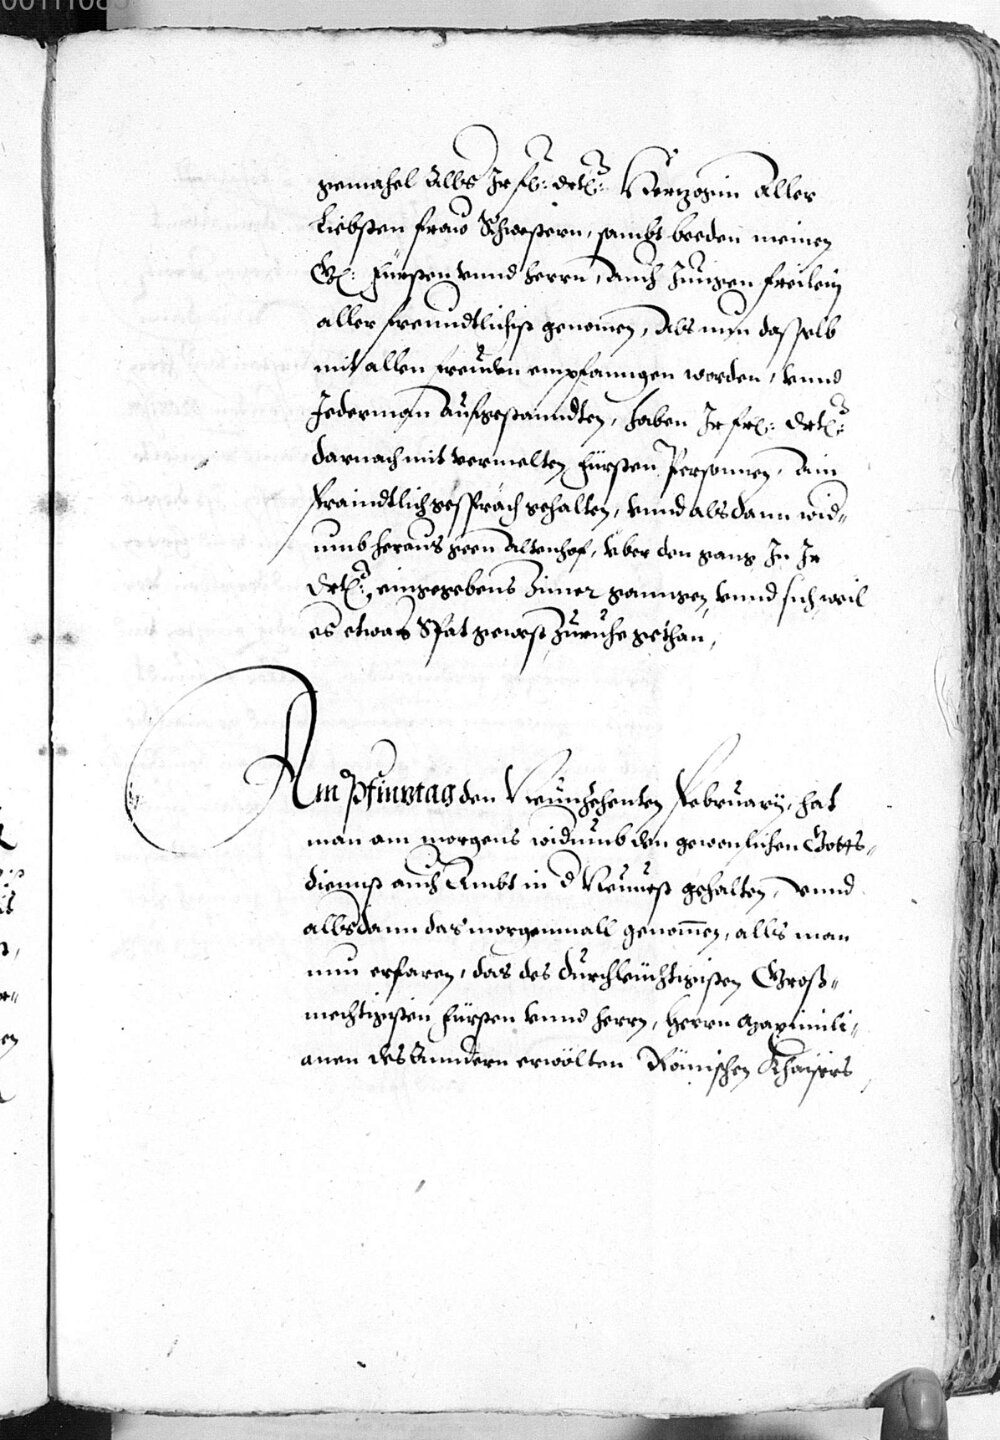 gemahel Albs Jr fl: drtl: Hertzogin Aller
Liebsten fraw Schwestern, sambt beeden meinen
Gl: Fürsten vnnd herrn, auch Jungen freilein
aller freundtlichist genomen, Als nun dasselb
mit allen freuden empfanngen worden, vnnd
Jederman aufgestanndten, haben Jr frl: Drtl:
darnach mit vermelten Fürsten Personnen, ain
fraindtlich gesprách gehalten, vnnd alsdann wid=
umb heraus geen Altenhof, vber den gang In Jr
Drtl: eingegebens Zimer gangen, vnnd sich weil
es etwas Spat gewest zuruhe gethan,
Am Pfinztag den Neunzehenten February, hat
man am morgens widumb den gewonlichen Gotts=
diennst auch Ambt in d Neuuest gehalten, vnnd
albsdann das morgenmall genomen, alls man
nun erfaren, das des durchleüchtigisten Groß=
mechtigisten Fürsten vnnd herrn, Herrn Maximili=
anen des Anndern erwölten Römischen Khaisers